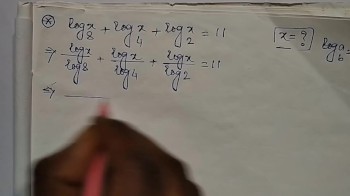 * log₈x + log₄x + log₂x = 11
x = ?
⇒ logx/log8 + logx/log4 + logx/log2 = 11
⇒